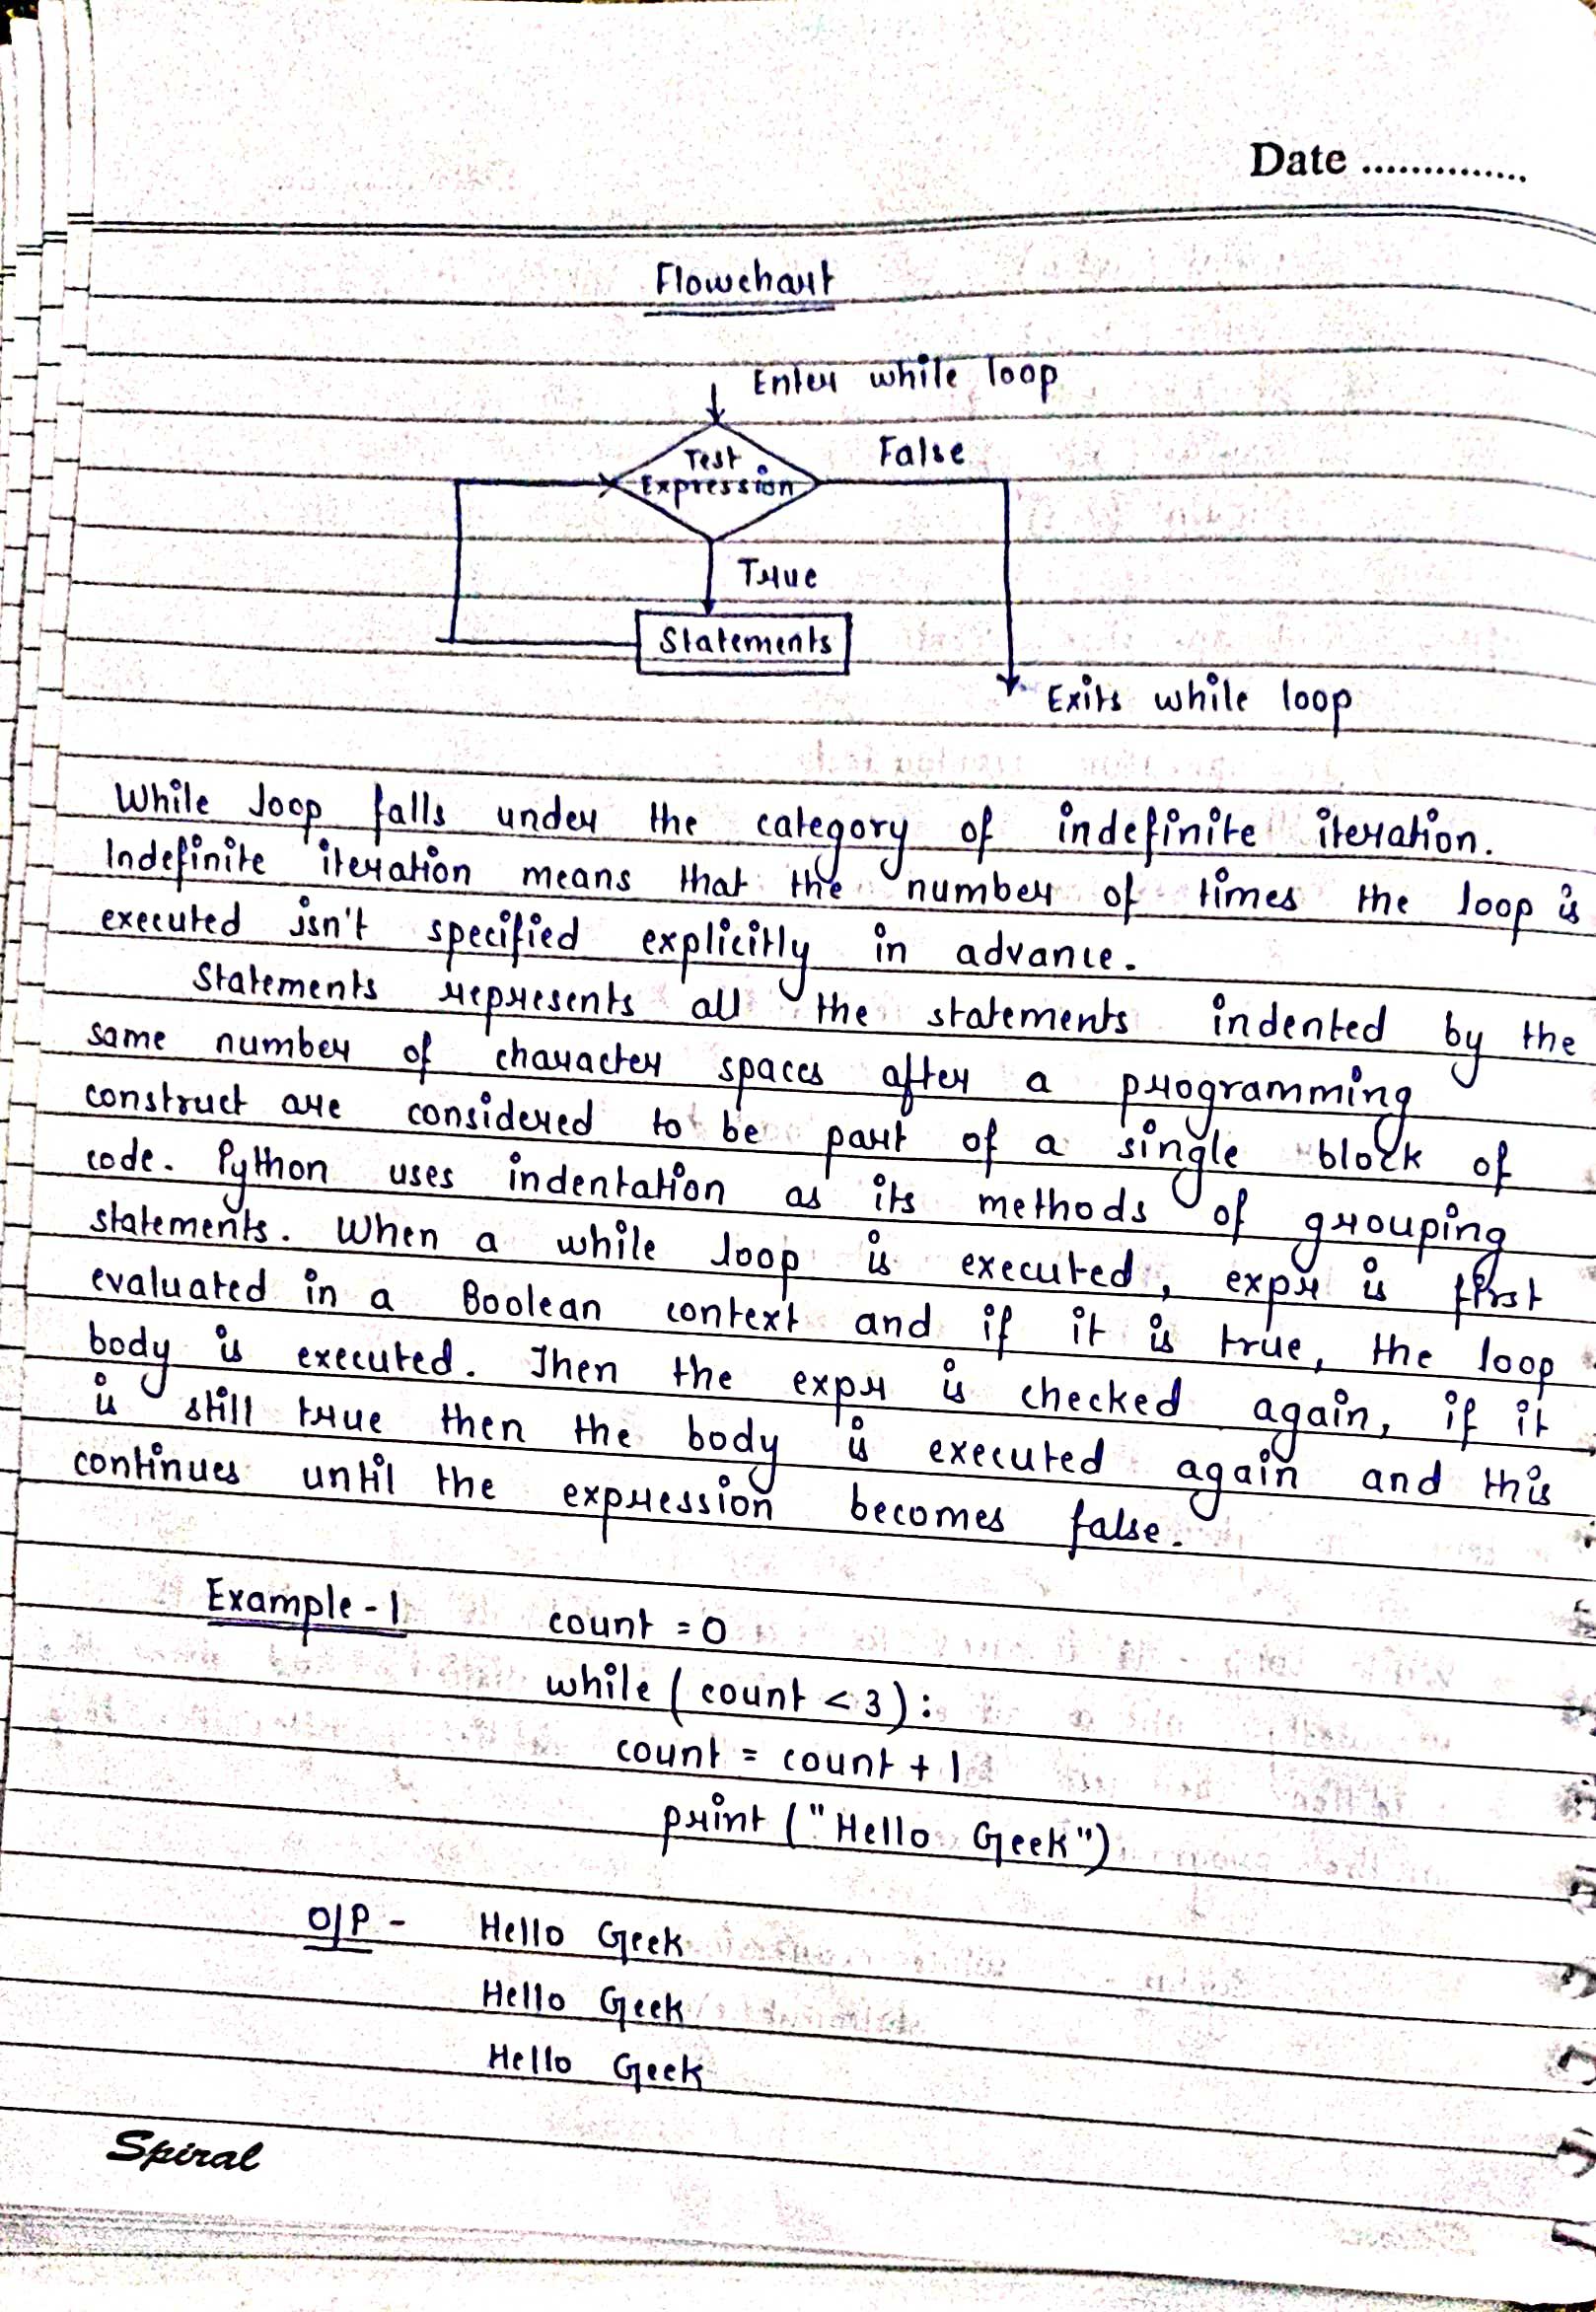 Date ..............
Flowchart
Enter while loop
Test
Expression
False
True
Statements
Exits while loop
While loop falls under the category of indefinite iteration.
Indefinite iteration means that the number of times the loop is
executed isn't specified explicitly in advance.
Statements represents all the statements indented by the
same number of character spaces after a programming
construct are considered to be part of a single block of
code. Python uses indentation as its methods of grouping
statements. When a while loop is executed, expr is first
evaluated in a Boolean context and if it is true, the loop
body is executed. Then the expr is checked again, if it
is still true then the body is executed again and this
continues until the expression becomes false.
Example-1 count = 0
while (count < 3):
count = count + 1
print ("Hello Geek")
O/P - Hello Geek
Hello Geek
Hello Geek
Spiral